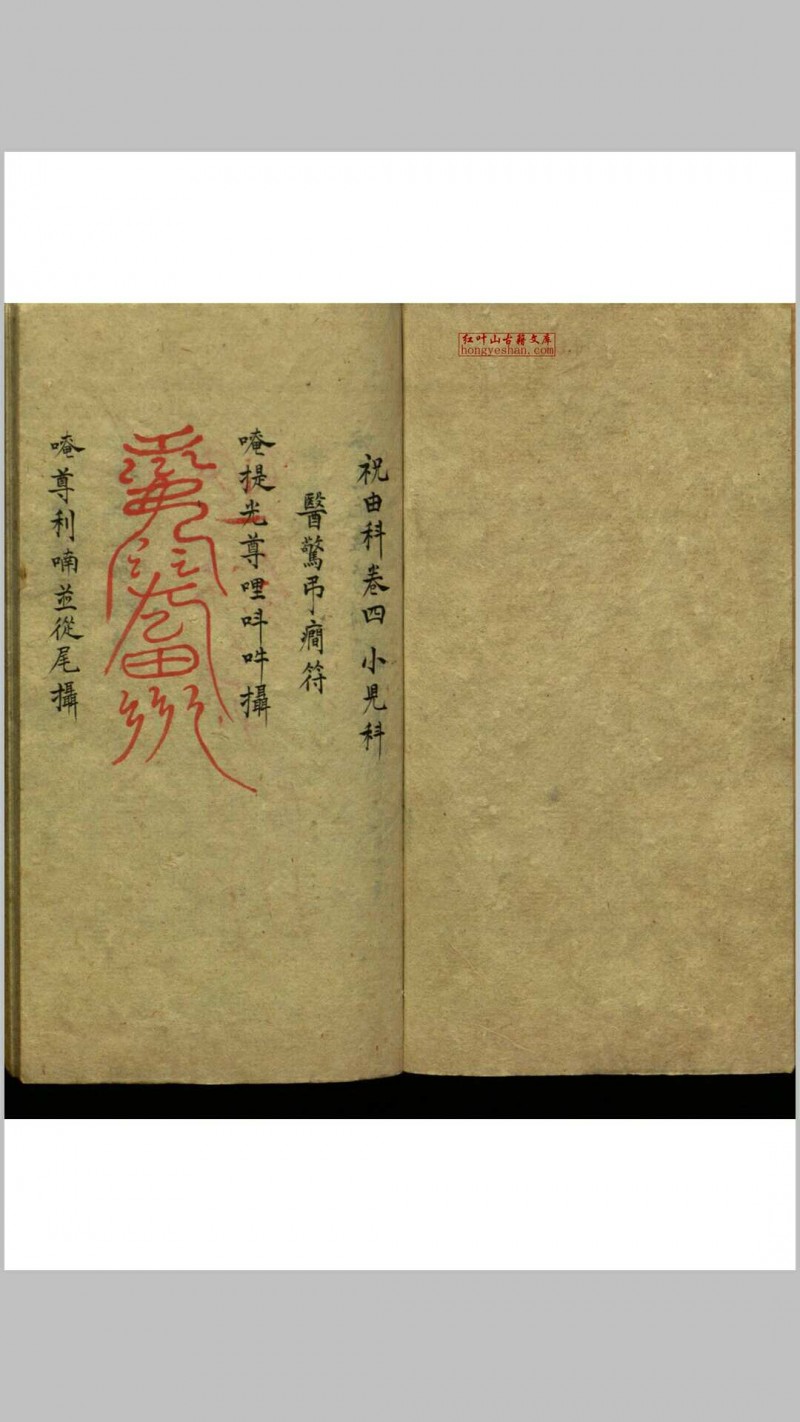 红叶山古籍文库
hongyeshan.com
祝由科卷四 小兒科
醫驚弔癇符
唵提光尊哩呌吽攝
唵尊利喃並從尾攝